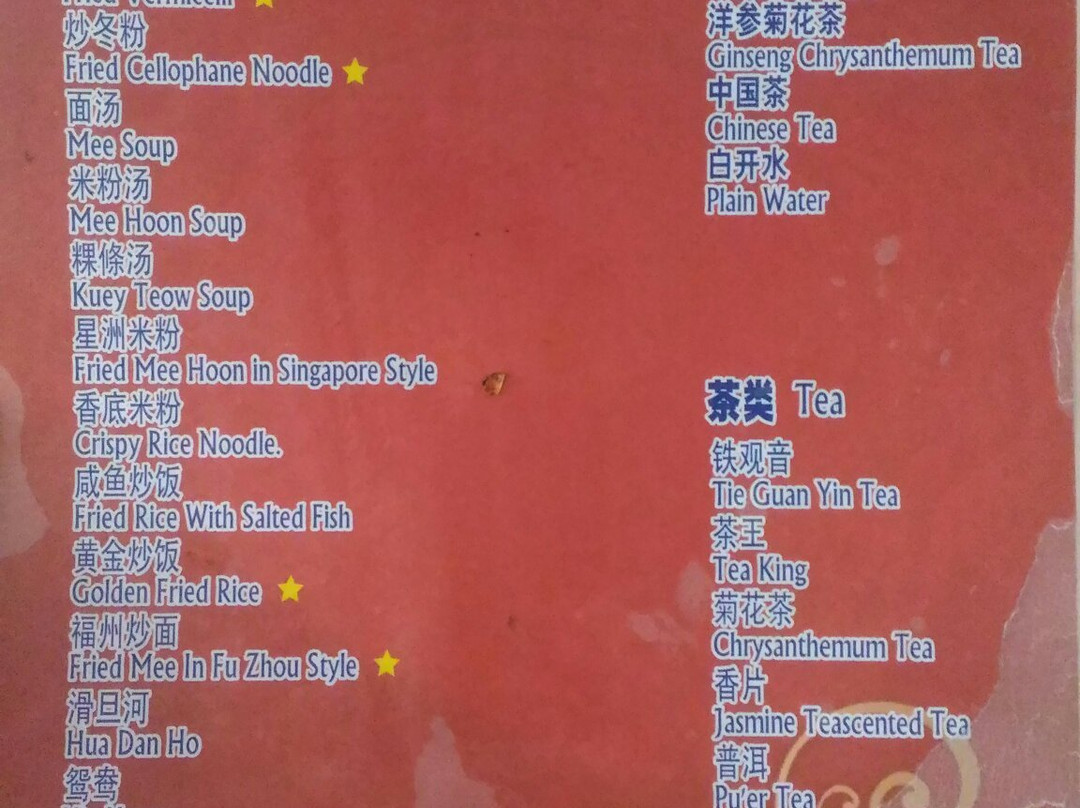 Fried Vermicelli
炒冬粉
Fried Cellophane Noodle
面汤
Mee Soup
米粉汤
Mee Hoon Soup
粿條汤
Kuey Teow Soup
星洲米粉
Fried Mee Hoon in Singapore Style
香底米粉
Crispy Rice Noodle.
咸鱼炒饭
Fried Rice With Salted Fish
黄金炒饭
Golden Fried Rice
福州炒面
Fried Mee In Fu Zhou Style
滑旦河
Hua Dan Ho
鸳鸯
洋参菊花茶
Ginseng Chrysanthemum Tea
中国茶
Chinese Tea
白开水
Plain Water
茶类 Tea
铁观音
Tie Guan Yin Tea
茶王
Tea King
菊花茶
Chrysanthemum Tea
香片
Jasmine Teascented Tea
普洱
Pu'er Tea